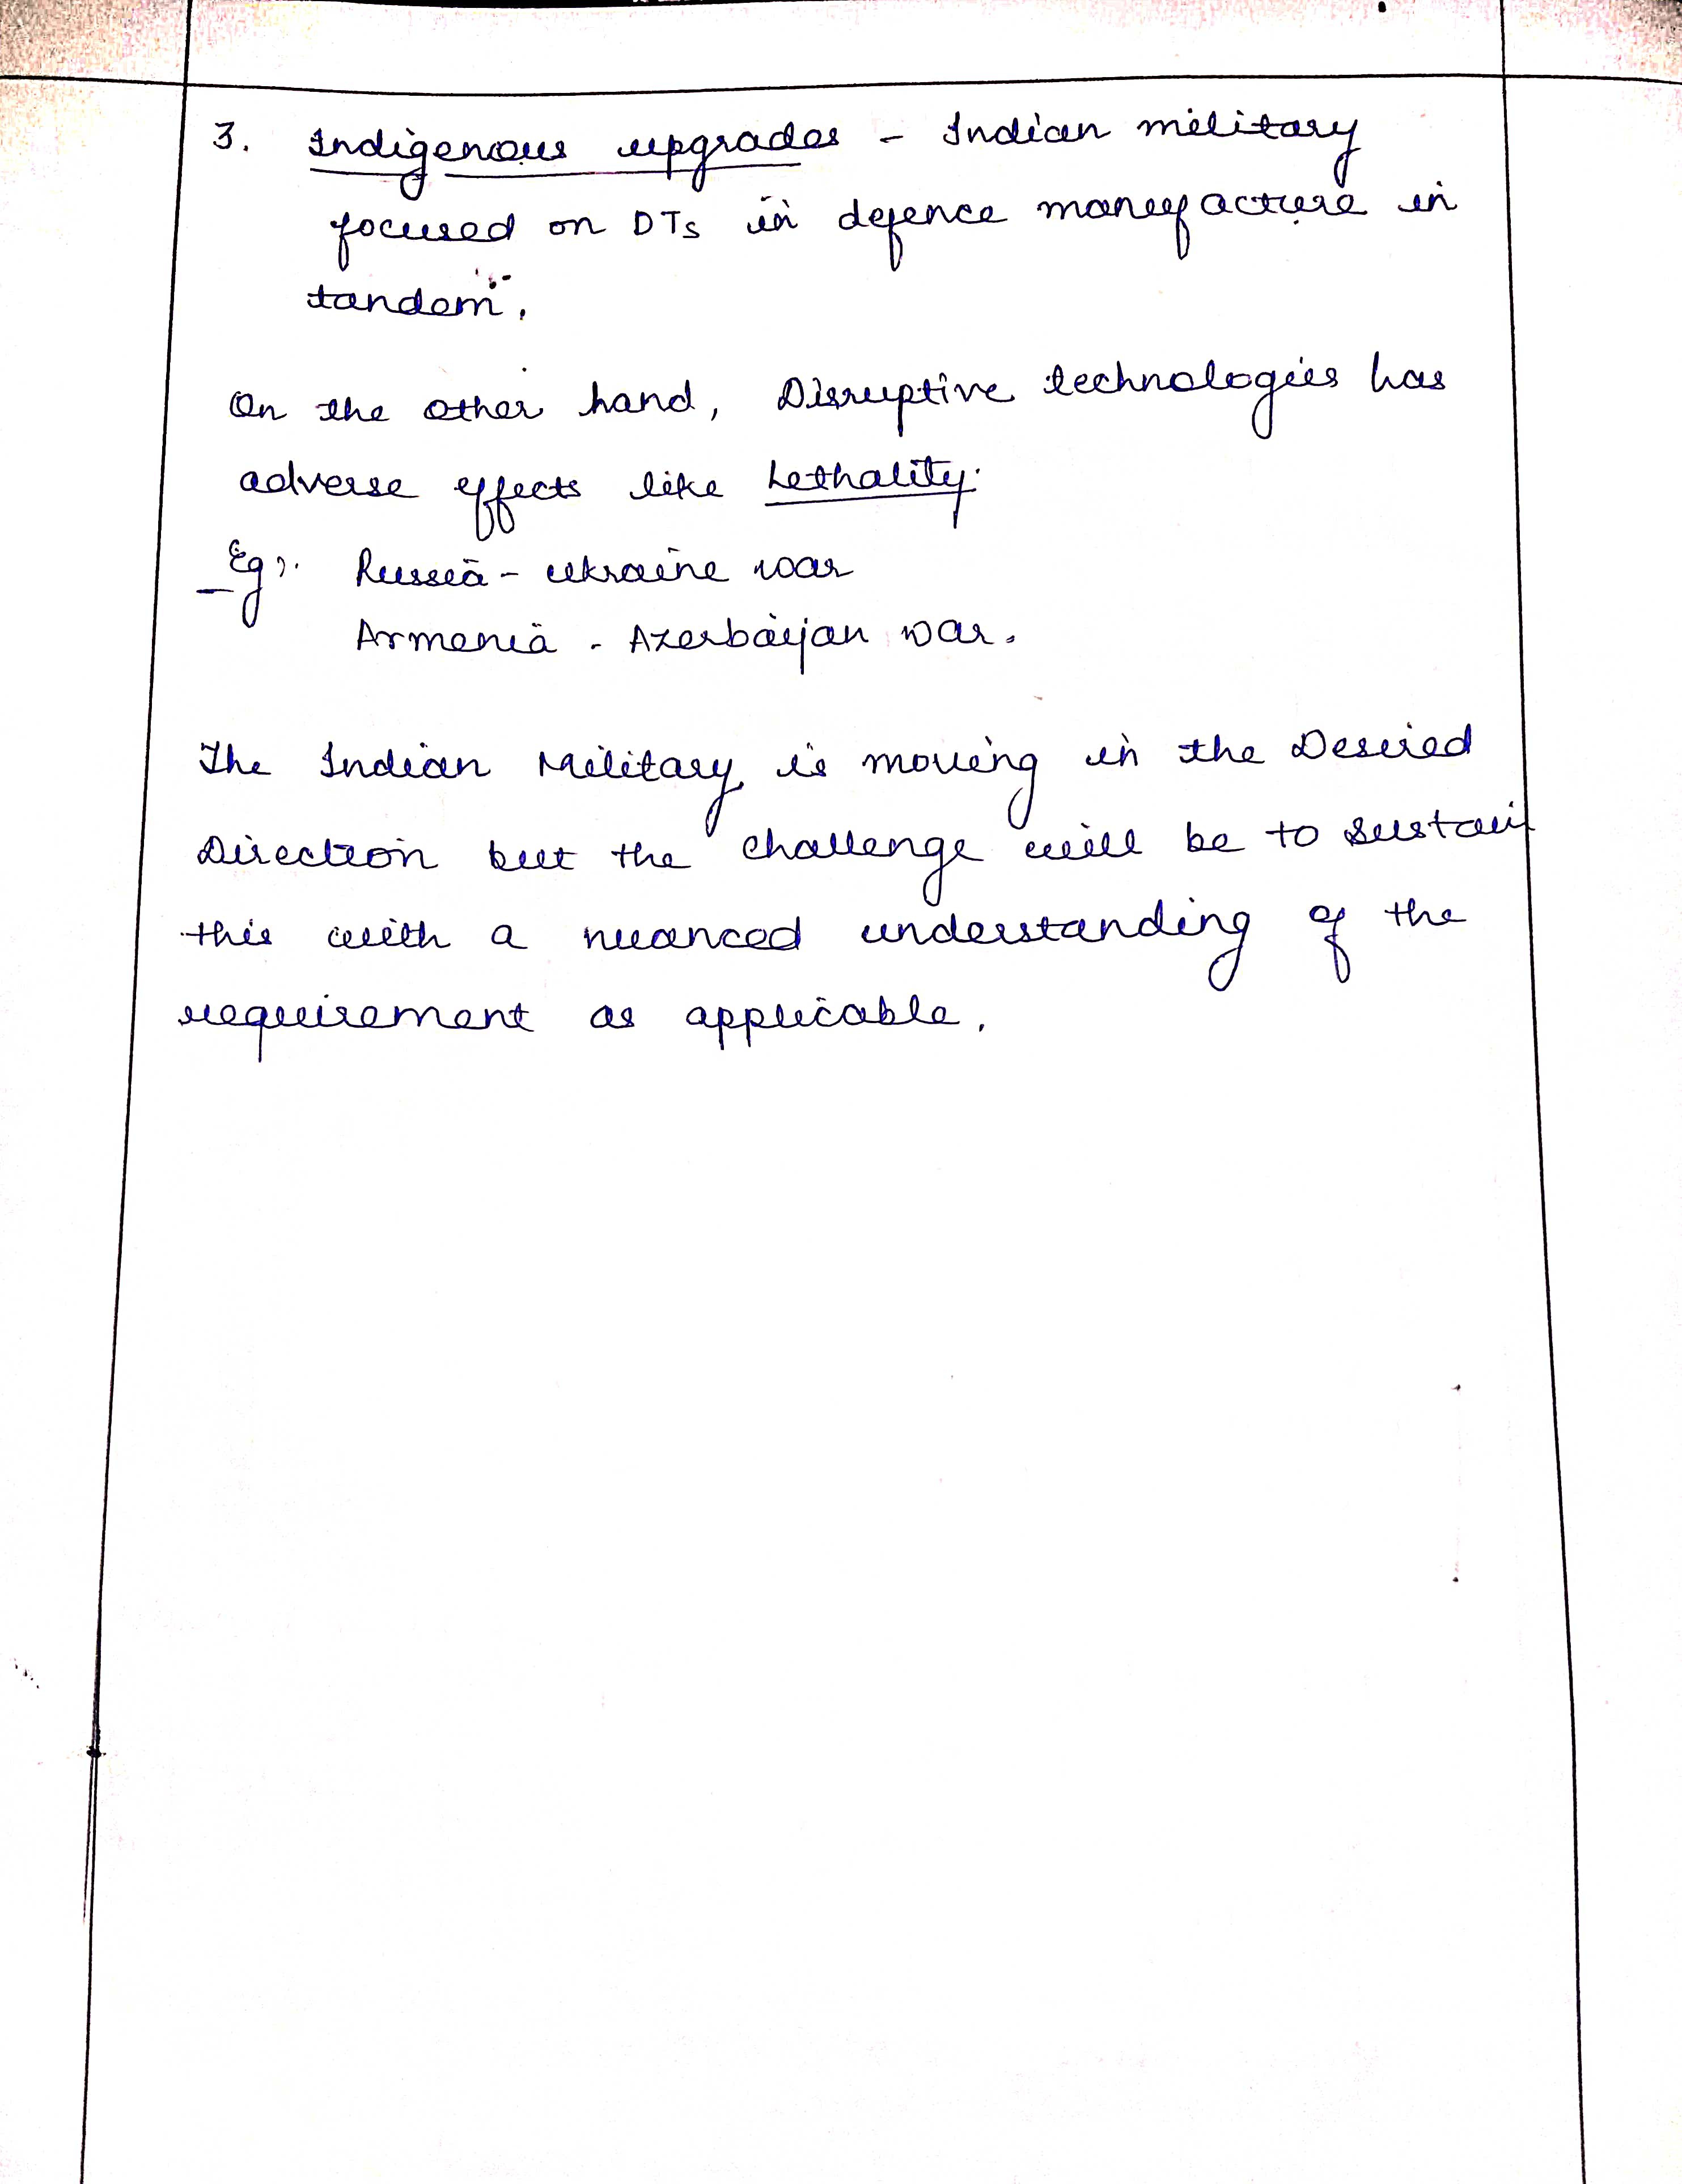 3. Indigenous upgrades - Indian military
focused on DTs in defence manufacture in
tandem.
On the other hand, Disruptive technologies has
adverse effects like Lethality.
Eg:. Russia - Ukraine war
Armenia - Azerbaijan war.
The Indian Military is moving in the Desired
Direction but the challenge will be to sustain
this with a nuanced understanding of the
requirement as applicable.